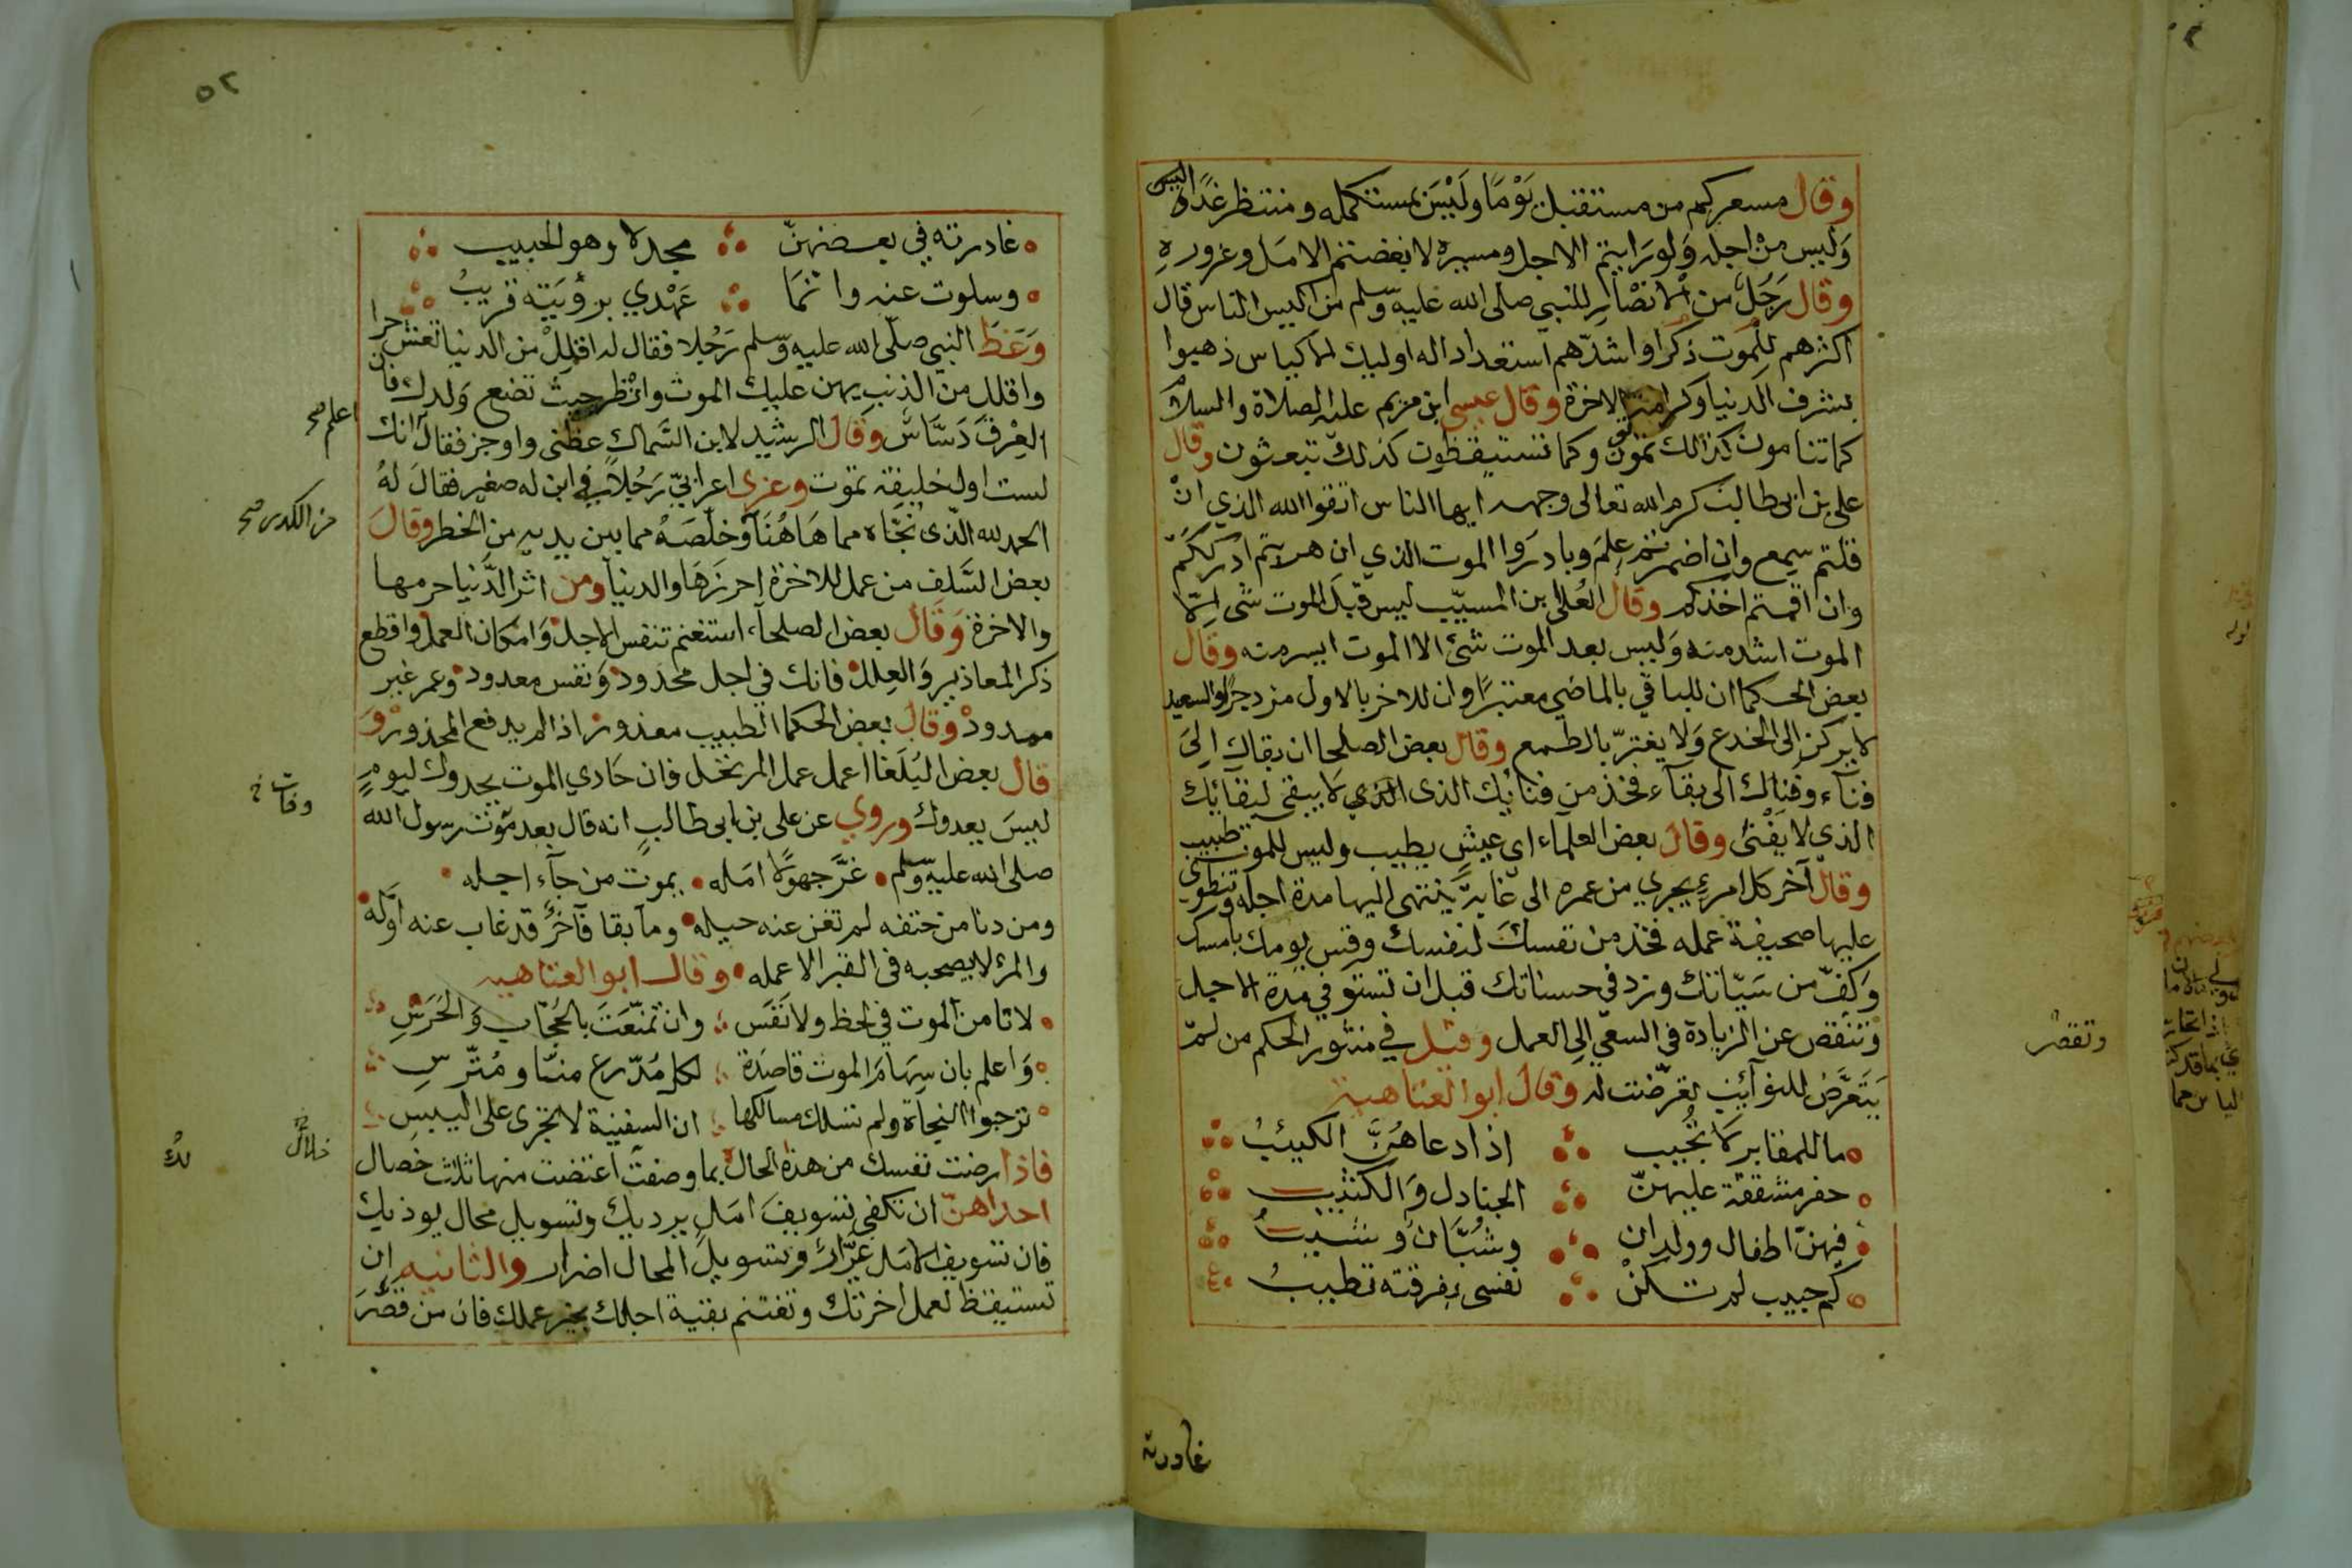 وقال مسعر كم من مستقبل يَوْمًا وَلَيْسَ بمستكمله ومنتظر غدًا اليس
وَليس من اجله وَلو رَايتم الاجل ومسيره لابغضتم الامل وغروره
وقال رَجُلٌ من الانصَار للنبي صلى الله عليه وسلم من اكيس الناس قال
اكثرهم للموت ذكرا واشدّهم استعدادا له اوليك الاكياس ذهبوا
بشرف الدنيا وكرامة الاخرة وقال عيسى ابن مريم عليه الصلاة والسلام
كما تنامون كذلك تموتون وكما تستيقظون كذلك تبعثون وقال
علي بن ابي طالب كرم الله تعالى وجهه ايها الناس اتقوا الله الذي ان
قلتم سمع وان اضمرتم علم وبادروا الموت الذي ان هربتم ادرككم
وان اقمتم اخذكم وقال العُلا بن المسيّب ليس قبل الموت شى الا
الموت اشد منه وَليس بعد الموت شئ الا الموت ايسر منه وقال
بعض الحكما ان للباقي بالماضي معتبرًا وان للاخر بالاول مزدجرًا والسعيد
لا يركن الى الخدع وَلا يغترّ بالطمع وقال بعض الصلحا ان بقاك الى
فنآء وفناك الى بقآء فخذ من فنائك الذى الذي لا يبقى لبقائك
الذى لا يَفْنى وقال بعض العلمآء اي عيش يطيب وليس للموت طبيب
وقال آخر كل امرءٍ يجري من عمره الى غايةٍ ينتهى اليها مدة اجله وتنطوي
عليها صحيفة عمله فخذ من نفسك لنفسك وقس يومك بامسك
وَكفّ من سَيّاتك وزد في حسناتك قبل ان تستوفي مدة الاجل
وتنقص عن الزيادة في السعي الى العمل وقيل في منثور الحكم من لم
يَتَعَرَّض للنوآئب تعرّضت له وقال ابو العتاهية
ما للمقابر لا تُجيب اذا دعاهُنَّ الكئيبُ
حفر مشققة عليهنّ الجنادل وَالكثيب
فيهنّ اطفال وولدان وشُبَّان وشيب
كم حبيب لم تكن نفسى بفرقته تطيبُ
وتقصر
غادرته
٥٢
غادرته في بعضهنّ مجدلا وهو الحبيب
وسلوت عنه وانمَا عَهْدي برؤيَته قريبُ
وَعَظَ النبي صلّى الله عليه وسلم رَجُلا فقال له اقلل من الدنيا تعش حرا
واقلل من الذنب يهن عليك الموت وانْظر حيث تضع وَلدك فان
العِرْقَ دَسَّاس وقال الرشيد لابن السَّماك عظني واوجز فقال انك
اعلم صح
لست اول خليفة تموت وعزى اعرابيّ رَجُلاً في ابن له صغير فقال لهُ
الحمد لله الّذى نجّاه مما هَاهُنَا وخلّصَهُ مما بين يديه من الخطر وقال
من الكدر صح
بعض السَّلف من عمل للاخرة احرزَهَا والدنيا ومن اثر الدَّنيا حرمها
والاخرة وَقَال بعض الصلحآء استغنم تنفس الاجل وَامكان العمل واقطع
ذكر المعاذير وَالعِلل فانك في اجل محْدود وَنفس معدود وعمر غير
ممدود وقال بعض الحكما الطبيب معذور اذا لم يدفع المحذور وَ
قال بعض البُلَغا اعمل عمل المرتحل فان حَادي الموت يحدوك ليومٍ
ليسَ يعدوك وروي عن علي بن ابي طالب انه قال بعد موت رسول الله
وفات خ
صلى الله عليه وسلم غرَّ جهوًلا امَله يموت من جآء اجله
ومن دنا من حتفه لم تغن عنه حيله وما بقا آخرٌ قد غاب عنه اوّله
والمرء لا يصحبه فى القبر الا عمله وقال ابو العتاهيه
لا تامن الموت في لحظ ولا نَفَس وان تمنّعَتَ بالحجّاب وَالحَرَسِ
وَاعلم بان سِهَامَ الموت قاصِدَة لكل مُدّرع منّا ومُتّرسِ
ترجوا النجاة ولم تسلك مسالكها ان السفينة لا تجرى على اليبسِ
فاذا رضت نفسك من هذه الحال بما وصفت اعتضت منها ثلاث خصال
خلال خ
لك
احداهنّ ان تكفى تسويفَ امَلٍ يرديك وتسويل محال يوذيك
فان تسويف الامَل غرّار وتسويل المحال اضرار والثانيه ان
تستيقظ لعمل اخرتك وتغتنم بقية اجلك بخير عملك فان من قصّرَ